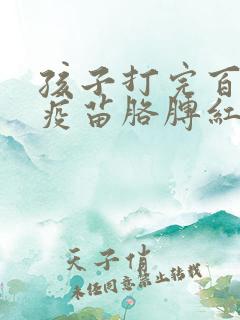 孩子打完百
疫苗胳膊红
天子俏
未经同意禁止转载